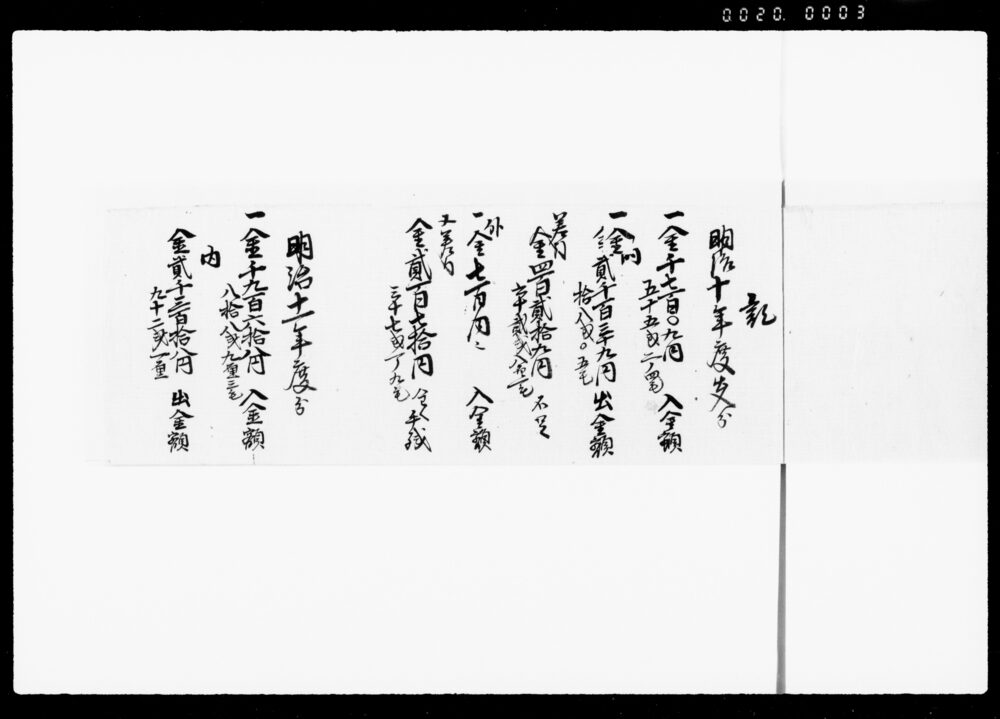 0020. 0003
記
明治十年度出入分
一金千七百〇九円 入金額
五十五銭二リ四毛
内
一金貳千百三十九円 出金額
拾八銭〇五毛
差引
金四百貳拾九円 不足
六十貳銭八リン一毛
外
一金七百円ニ 入金額
又差引
金貳百七拾円 全ク手残
三十七銭一リ九毛
明治十一年度分
一金千九百六拾八円 入金額
八拾八銭九厘三毛
内
金貳千三百拾八円 出金額
九十二銭一厘